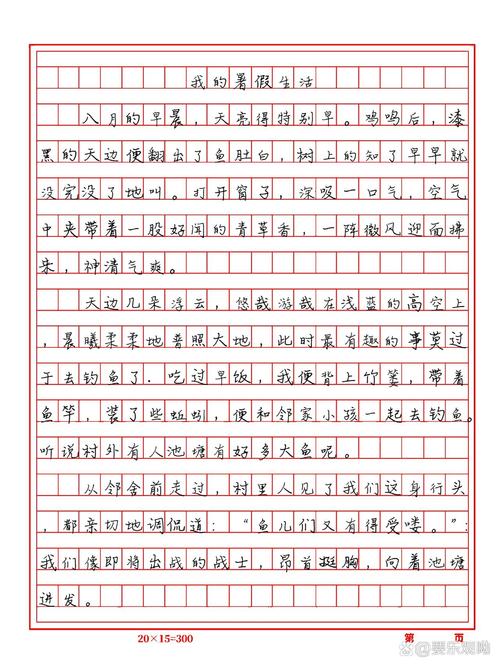 我的暑假生活
八月的早晨，天亮得特别早。鸡鸣后，漆
黑的天边便翻出了鱼肚白，树上的知了早早就
没完没了地叫。打开窗子，深吸一口气，空气
中夹带着一股好闻的青草香，一阵微风迎面拂
来，神清气爽。
天边几朵浮云，悠哉游哉在浅蓝的高空上
，晨曦柔柔地普照大地，此时最有趣的事莫过
于去钓鱼了．吃过早饭，我便背上竹篓，带着
鱼竿，装了些蚯蚓，便和邻家小孩一起去钓鱼。
听说村外有人池塘有好多大鱼呢。
从邻舍前走过，村里人见了我们这身行头
，都亲切地调侃道：“鱼儿们又有得受喽。”：
我们像即将出战的战士，昂首挺胸，向着池塘
进发。
20×15=300 第 页
@要乐观呦